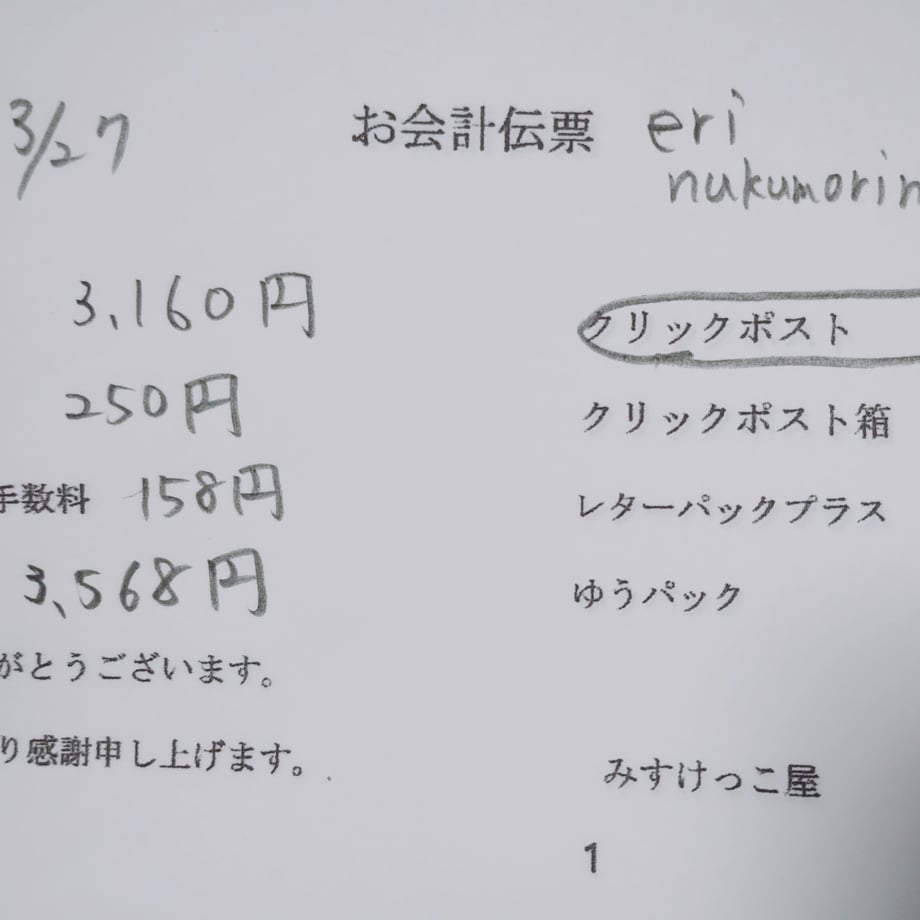 3/27
お会計伝票
eri
nukumorin
3,160円
クリックポスト
250円
クリックポスト箱
手数料 158円
レターパックプラス
3,568円
ゆうパック
がとうございます。
り感謝申し上げます。
みすけっこ屋
1